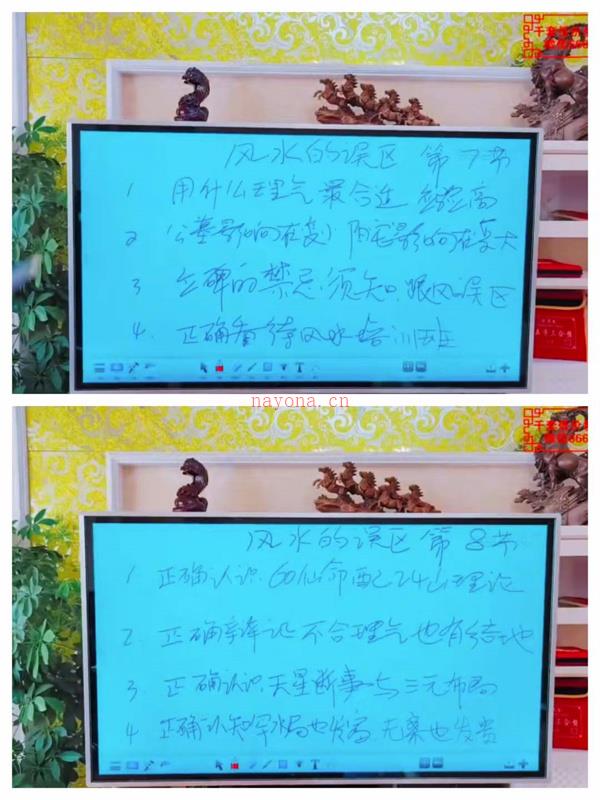 风水的误区 第7节
1 用什么理气最合适
2 公墓影响有多少 阴宅影响有多大
3 立碑的禁忌须知 跟风误区
4. 正确看待风水培训班
nayona.cn
风水的误区 第8节
1 正确认识 60仙命配24山理论
2. 正确辩证 不合理气也有结地
3 正确认识天星断事与三元布局
4 正确认知 局也发富 无案也发贵